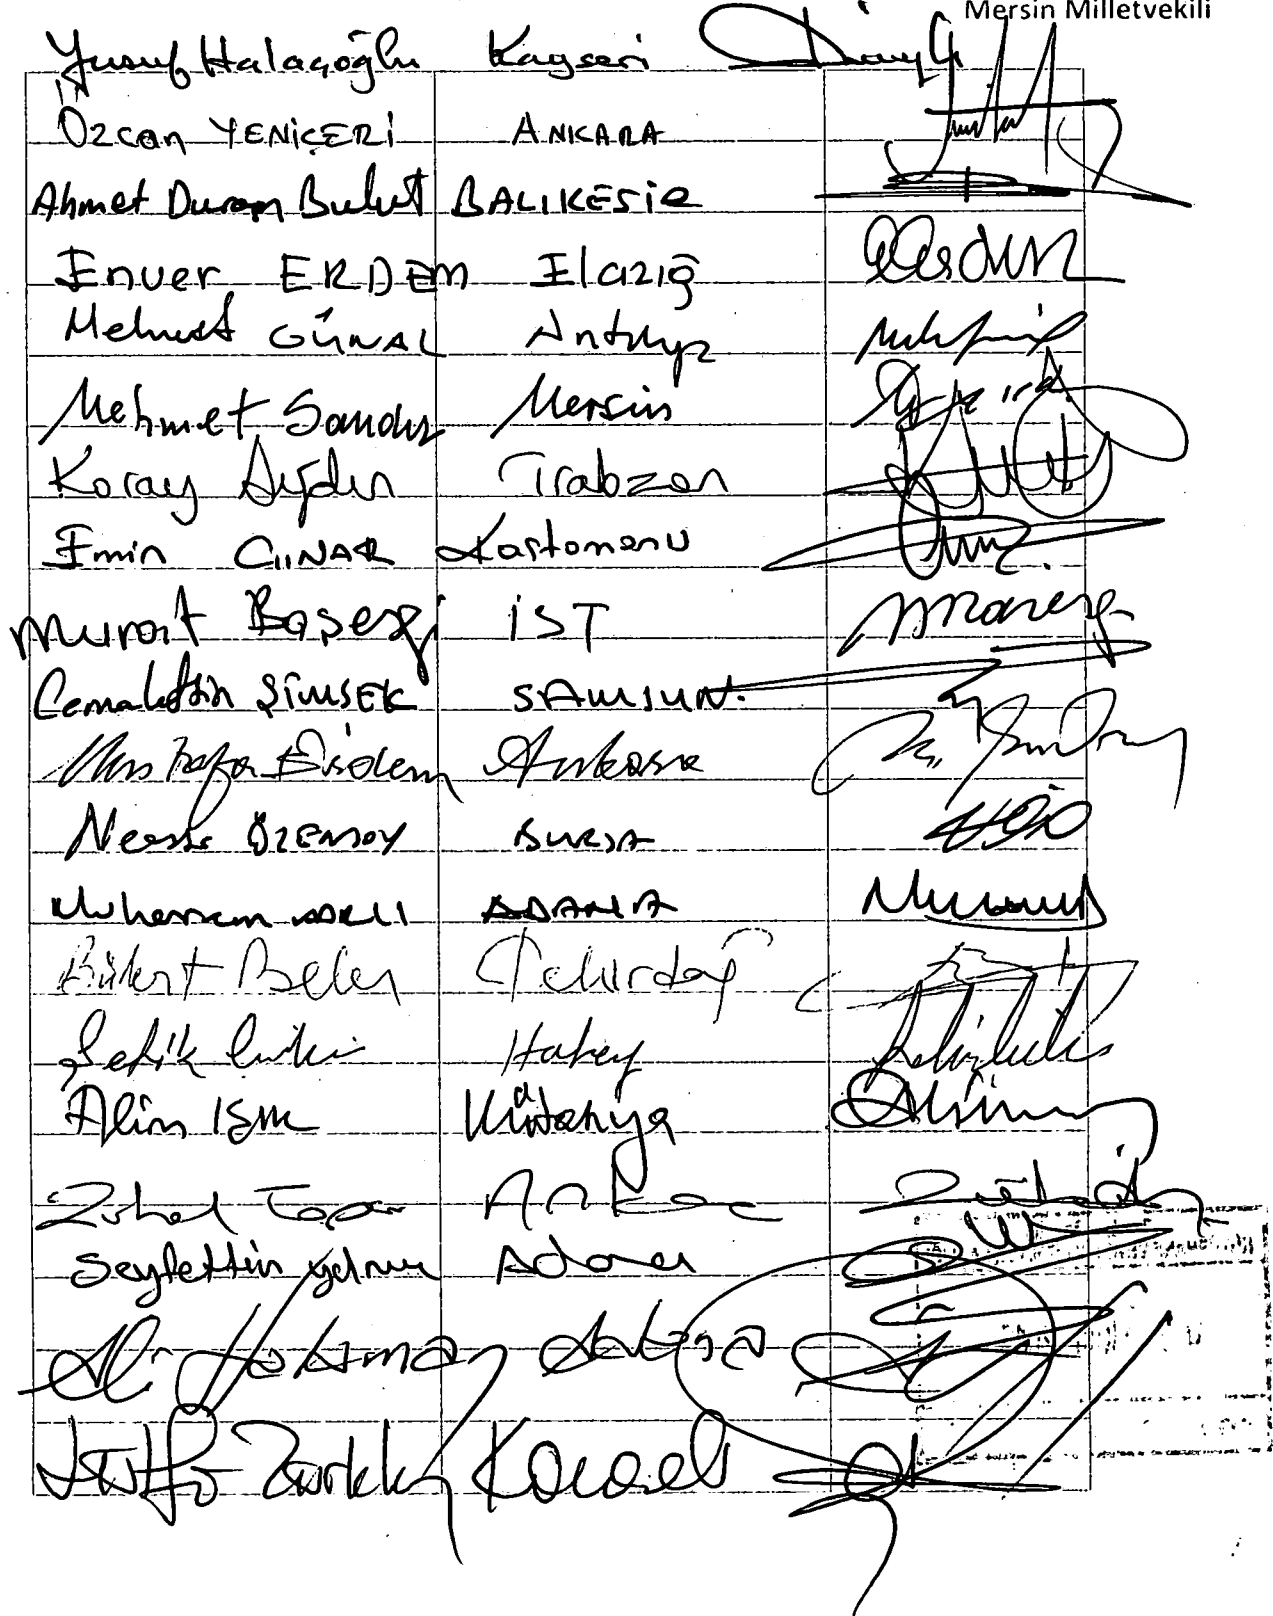 Mersin Milletvekili
Yusuf Halaçoğlu Kayseri
Özcan YENİÇERİ ANKARA
Ahmet Duran Bulut BALIKESİR
Enver ERDEM Elazığ
Mehmet GÜNAL Antalya
Mehmet Şandır Mersin
Koray Aydın Trabzon
Emin ÇINAR Kastamonu
Murat Başesgi İST
Cemalettin ŞİMŞEK SAMSUN.
Mustafa Erdem Ankara
Necati ÖZENSOY BURSA
Muharrem VARLI ADANA
Bülent Belen Tekirdağ
Şefik Çirkin Hatay
Alim Işık Kütahya
Zühal Topcu Ankara
Seyfettin Yılmaz Adana
Ali Halaman Adana
Lütfü Türkkan Kocaeli